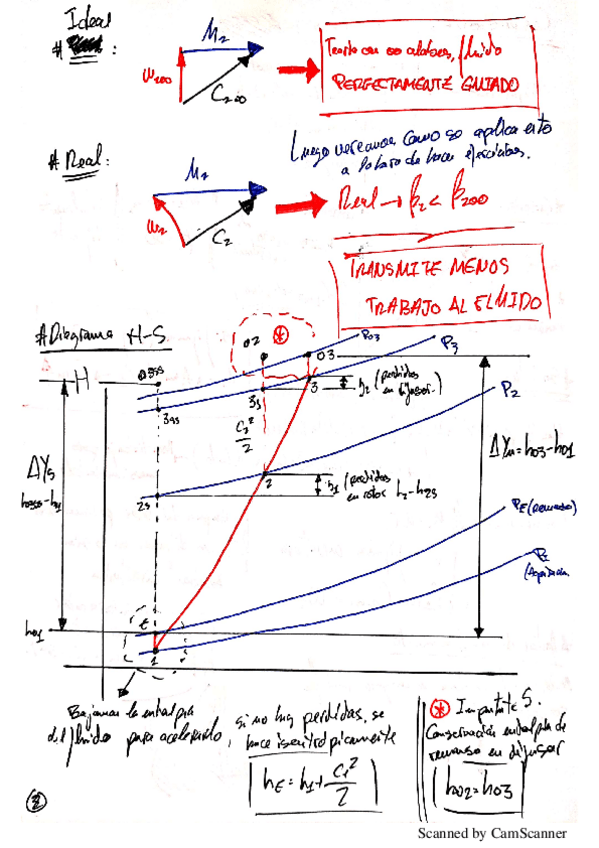 Ideal
# :
M₂
W₂∞
C₂∞
Teoría con ∞ alabes, fluido
PERFECTAMENTE GUIADO
# Real:
Luego veremos como se aplica esto
a la hora de hacer ejercicios.
M₂
W₂
C₂
Real → β₂ < β₂∞
TRANSMITE MENOS
TRABAJO AL FLUIDO
# Diagrama H-S
02
*
03
P03
P3
H
03ss
3ss
3s
3
h2 (perdidas en difusor)
C₂²/2
P2
ΔYs
h03ss-h01
ΔYu = h03-h01
2s
2
h1 (perdidas en rotor h2-h2s
PE (remanso)
P1
(Aspiración
h01
E
1
Bajamos la entalpia
del fluido para acelerarlo, si no hay perdidas, se
hace isentropicamente
hE = h1 + C₁²/2
* Importante S.
Conservación entalpia de
remanso en difusor
h02 = h03
2
Scanned by CamScanner